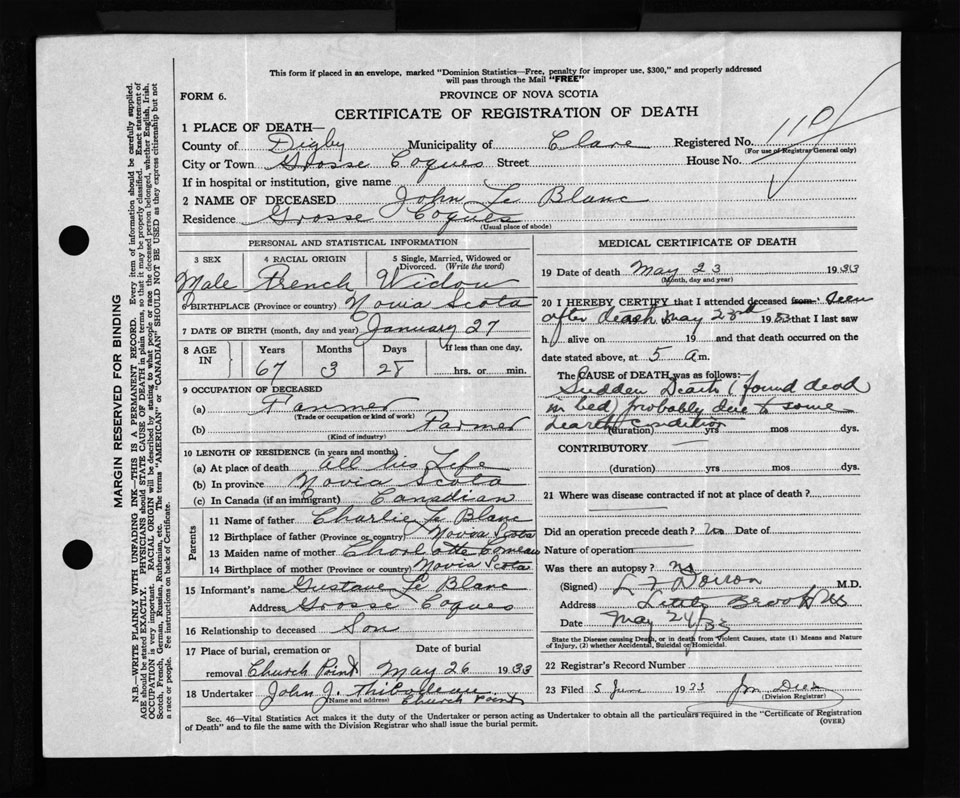 This form if placed in an envelope, marked "Dominion Statistics—Free, penalty for improper use, $300," and properly addressed
will pass through the Mail "FREE"
FORM 6.
PROVINCE OF NOVA SCOTIA
CERTIFICATE OF REGISTRATION OF DEATH
1 PLACE OF DEATH—
County of Digby Municipality of Clare Registered No. 110
(For use of Registrar General only)
City or Town Grosse Coques Street House No.
If in hospital or institution, give name
2 NAME OF DECEASED John Le Blanc
Residence Grosse Coques
(Usual place of abode)
PERSONAL AND STATISTICAL INFORMATION
3 SEX 4 RACIAL ORIGIN 5 Single, Married, Widowed or
Divorced. (Write the word)
Male French Widow
6 BIRTHPLACE (Province or country) Novia Scota
7 DATE OF BIRTH (month, day and year) January 27
8 AGE IN Years Months Days If less than one day,
67 3 28 hrs. or min.
9 OCCUPATION OF DECEASED
(a) Farmer
(Trade or occupation or kind of work)
(b) Farmer
(Kind of industry)
10 LENGTH OF RESIDENCE (in years and months)
(a) At place of death all his Life
(b) In province Novia Scota
(c) In Canada (if an immigrant) Canadian
Parents
11 Name of father Charlie Le Blanc
12 Birthplace of father (Province or country) Novia Scota
13 Maiden name of mother Charlotte Comeau
14 Birthplace of mother (Province or country) Novia Scota
15 Informant's name Gustave Le Blanc
Address Grosse Coques
16 Relationship to deceased Son
17 Place of burial, cremation or Date of burial
removal Church Point May 26 1933
18 Undertaker John J. Thibodeau
(Name and address) Church Point
MEDICAL CERTIFICATE OF DEATH
19 Date of death May 23 1933
(Month, day and year)
20 I HEREBY CERTIFY that I attended deceased from seen
after death May 23rd 1933 that I last saw
h alive on 19 and that death occurred on the
date stated above, at 5 a m.
The CAUSE OF DEATH was as follows:
Sudden Death (found dead
in bed) probably due to some
hearth condition
(duration) yrs mos dys.
CONTRIBUTORY:
(duration) yrs mos dys.
21 Where was disease contracted if not at place of death?
Did an operation precede death? No Date of
Nature of operation
Was there an autopsy? No
(Signed) M.D.
Address Little Brook NS
Date May 24/33
State the Disease causing Death, or in death from Violent Causes, state (1) Means and Nature
of Injury, (2) whether Accidental, Suicidal or Homicidal.
22 Registrar's Record Number
23 Filed 5 June 1933
(Division Registrar)
Sec. 46—Vital Statistics Act makes it the duty of the Undertaker or person acting as Undertaker to obtain all the particulars required in the "Certificate of Registration
of Death" and to file the same with the Division Registrar who shall issue the burial permit.
(OVER)
MARGIN RESERVED FOR BINDING
N.B.—WRITE PLAINLY WITH UNFADING INK—THIS IS A PERMANENT RECORD. Every item of information should be carefully supplied.
AGE should be stated EXACTLY. PHYSICIANS should STATE CAUSE OF DEATH in plain terms, so that it may be properly classified. Exact statement of
OCCUPATION is very important. RACIAL ORIGIN will be described by stating to what people or race the deceased person belonged, whether English, Irish,
Scotch, French, German, Russian, Ruthenian, etc. The terms "AMERICAN" or "CANADIAN" SHOULD NOT BE USED as they express citizenship but not
a race or people. See instructions on back of Certificate.